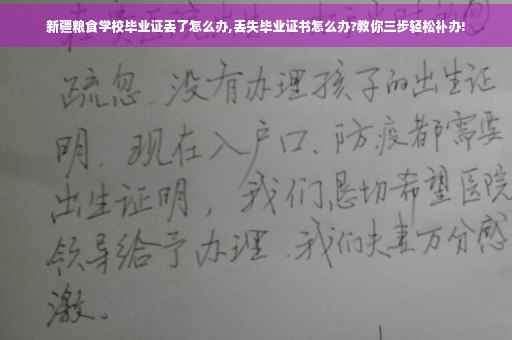 新疆粮食学校毕业证丢了怎么办,丢失毕业证书怎么办?教你三步轻松补办!
疏忽.没有办理孩子的出生证
明.现在入户口、防疫都需要
出生证明，我们恳切希望医院
领导给予办理.我们夫妻万分感
激。